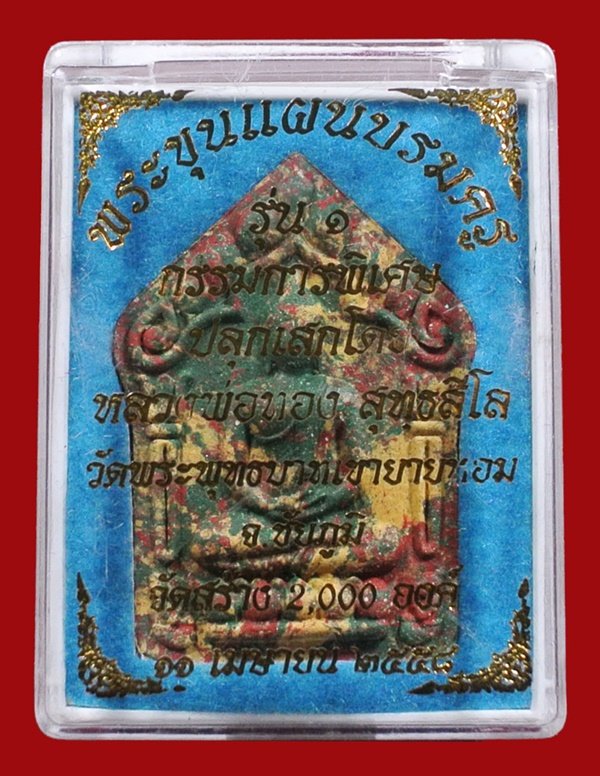 พระขุนแผนบรมครู
รุ่น ๑
กรรมการพิเศษ
ปลุกเสกโดย
หลวงพ่อทอง สุทธสีโล
วัดพระพุทธบาทเขายายหอม
จ.ชัยภูมิ
จัดสร้าง 2,000 องค์
๑๑ เมษายน ๒๕๕๘